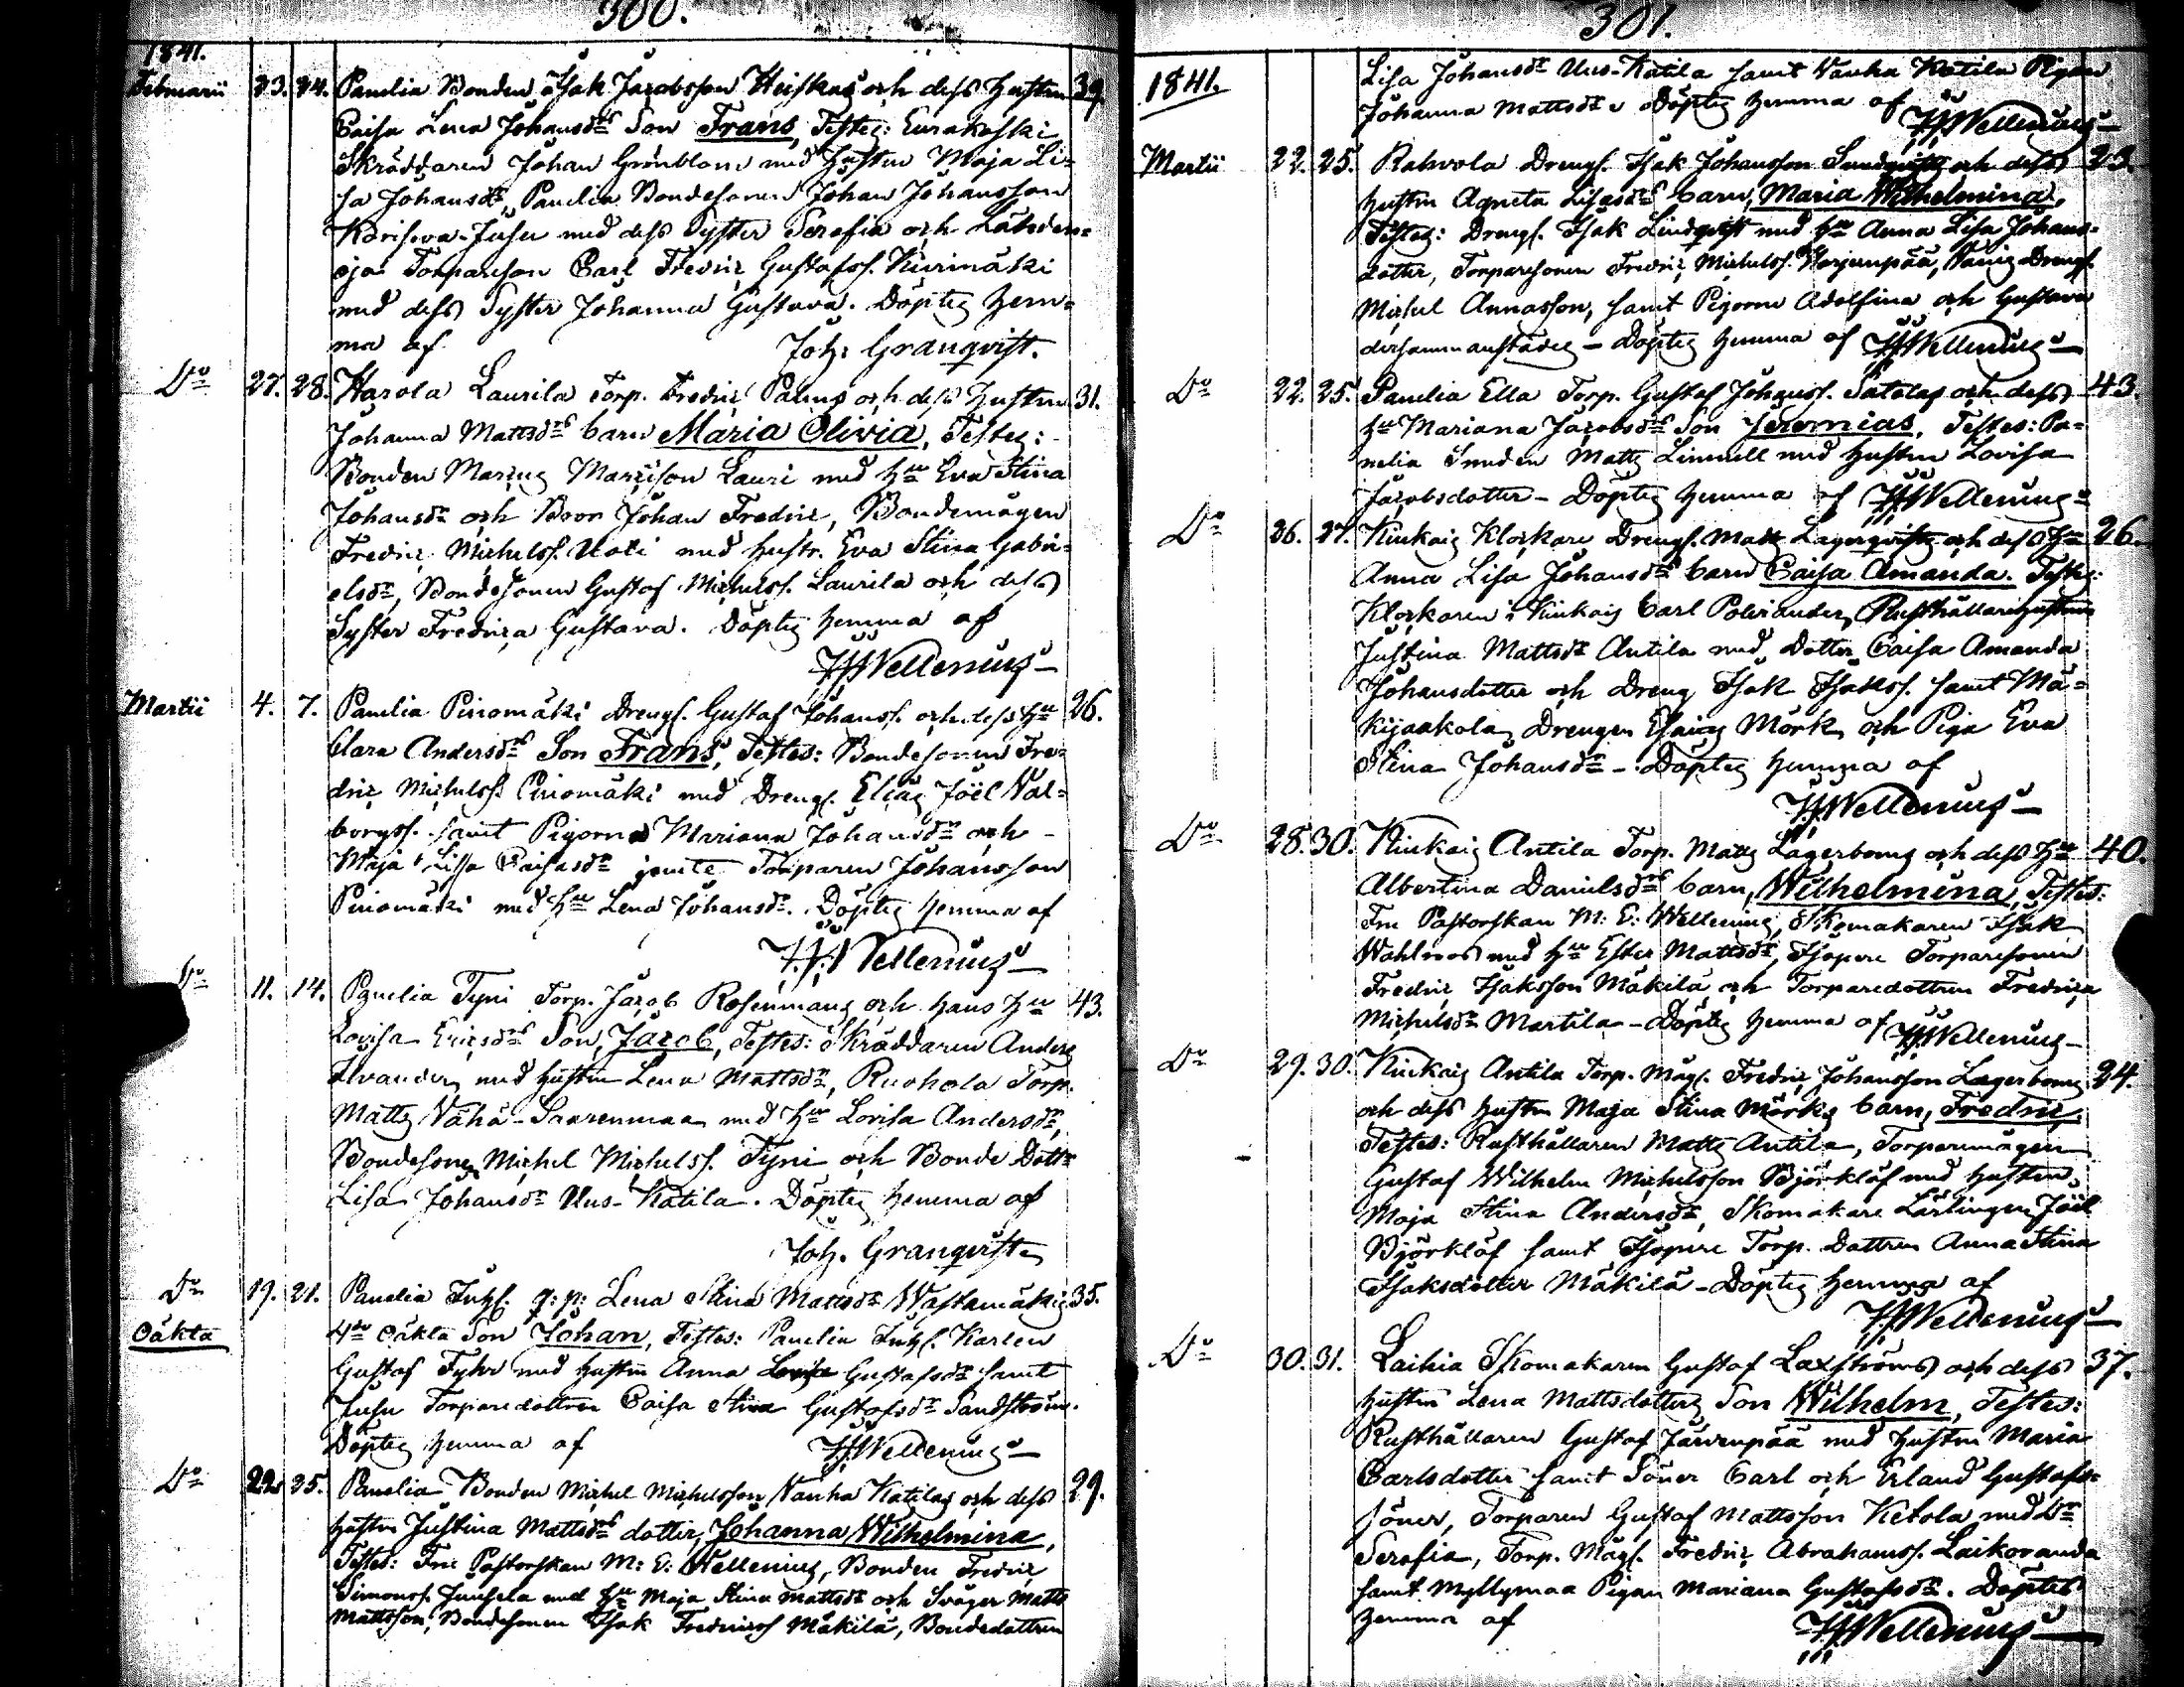 300.
1841.
Februarii 23. 24. Panelia Bonden Isak Jacobsson Heiskas och dess Hustru 39.
Caisa Lena Johansdrs Son Frans, Testes: Eurakoski
Skräddaren Johan Grönblom med Hustru Maja Li=
sa Johansdr, Panelia Bondesonen Johan Johansson
med dess Syster Serafia och
Torpareson Carl Fredric Gustafss. Kurimäki
med dess Syster Johanna Gustava. Döptes hem=
ma af Joh: Granqvist.
Do 27. 28. Harola Laurila Torp. Fredric Palins och dess Hustru 31.
Johanna Mattsdrs barn Maria Olivia, Testes:
Bonden Marcus Marcison Lauri med Hu Eva Stina
Johansdr och Bror Johan Fredric, Bondemågen
Fredric Michelss. Uoti med Hustr. Eva Stina Gabri=
elsdr, Bondesonen Gustaf Michelss. Laurila och dess
Syster Fredrica Gustava. Döptes hemma af
HWellenius
Martii 4. 7. Panelia Pinomäki Drengs. Gustaf Johanss. och dess Hu 26.
Clara Andersdrs Son Frans, Testes: Bondesonen Fre=
dric Michelss. Pinomäki med Drengs. Elias Joël Val=
borgss. samt Pigorna Mariana Johansdr och
Maja Lisa Caisasdr jemte Torparen Johansson
Pinomäki med Hu Lena Johansdr. Döptes hemma af
HWellenius
Do 11. 14. Panelia Tyni Torp. Jacob Rosenmans och hans Hu 43.
Lovisa Ericsdrs Son, Jacob, Testes: Skräddaren Anders
med Hustru Lena Mattsdr, Ruohola Torp.
Matts Vähä-Saarenmaa med Hu Lovisa Andersdr,
Bondesonen Michel Michelss. Tyni och Bonde Dottr
Lisa Johansdr Uus-Katila. Döptes hemma af
Joh. Granqvist
Do 19. 21. Panelia Inhs. q: p: Lena Stina Mattsdr Wastamäkis 35.
Oäkta 4de oäkta Son Johan, Testes: Panelia Inhs. Karlen
Gustaf Fyhr med Hustru Anna Lovisa Gustafsdr samt
Jusu Torparedottren Caisa Stina Gustafsdr Sandström.
Döptes hemma af HWellenius
Do 22. 25. Panelia Bonden Michel Michelsson Vanha Katilas och dess 29.
Hustru Justina Mattsdrs dotter, Johanna Wilhelmina,
Testes: Fru Pastorskan M: E: Wellenius, Bonden Fredric
Simonss. Junsela med Hu Maja Stina Mattsdr och Svåger Matts
Mattsson, Bondesonen Isak Fredricss Mäkilä, Bondedottren
301.
1841. Lisa Johansdr Uus-Katila samt Vanha Katila Pigan
Johanna Mattsdr. Döptes hemma af HWellenius
Martii 22. 25. Rahvola Drengs. Isak Johansson Sundqvists och dess 23.
Hustru Agneta Lisasdrs barn, Maria Wilhelmina,
Testes: Drengs. Isak Lindqvist med Hu Anna Lisa Johans=
dotter, Torparesonen Fredric Michelss. Harjunpää, Drengs.
Michel Annasson, samt Pigorne Adolfina och Gustava
dersammanstädes - Döptes hemma af HWellenius
Do 22. 25. Panelia Ella Torp. Gustaf Johanss. Satolas och dess 43.
Hu Mariana Jacobsdrs Son Jeremias, Testes: Pa=
nelia Smeden Matts Linnell med Hustru Lovisa
Jacobsdotter - Döptes hemma af HWellenius
Do 26. 27. Kiukais Klockare Drengs. Matts Lagerqvists och dess Hu 26.
Anna Lisa Johansdrs barn Caisa Amanda. Testes:
Klockaren i Kiukais Carl Polviander, Rusthållarehustrun
Justina Mattsdr Antila med Dotter Caisa Amanda
Johansdotter och Dreng Isak Isakss. samt Mä=
kijaakola Drengen Esaias Mörk och Piga Eva
Stina Johansdr - Döptes hemma af
HWellenius
Do 28. 30. Kiukais Antila Torp. Matts Lagerboms och dess Hu 40.
Albertina Danielsdrs barn, Wilhelmina, Testes:
Fru Pastorskan M: E: Wellenius, Skomakaren Isak
Wahlroos med Hu Ester Mattsdr, Isopere Torparesonen
Fredric Isaksson Mäkilä och Torparedottren Fredrica
Michelsdr Martila - Döptes hemma af HWellenius
Do 29. 30. Kiukais Antila Torp. Mågs. Fredric Johansson Lagerboms 24.
och dess Hustru Maja Stina Mörks barn, Fredric,
Testes: Rusthållaren Matts Antila, Torparemågen
Gustaf Wilhelm Michelsson Björklöf med Hustru
Maja Stina Andersdr, Skomakare Lärlingen Joël
Björklöf samt Isopere Torp. Dottren Anna Stina
Isaksdotter Mäkilä - Döptes hemma af
HWellenius
Do 30. 31. Laihia Skomakaren Gustaf Laxströms och dess 37.
Hustru Lena Mattsdotters Son Wilhelm, Testes:
Rusthållaren Gustaf Järvenpää med Hustru Maria
Carlsdotter samt Söner Carl och Erland Gustafs=
söner, Torparen Gustaf Mattsson Ketola med Dr
Serafia, Torp. Mågs. Fredric Abrahamss. Laikoranda
samt Myllymaa Pigan Mariana Gustafsdr. Döptes
hemma af HWellenius